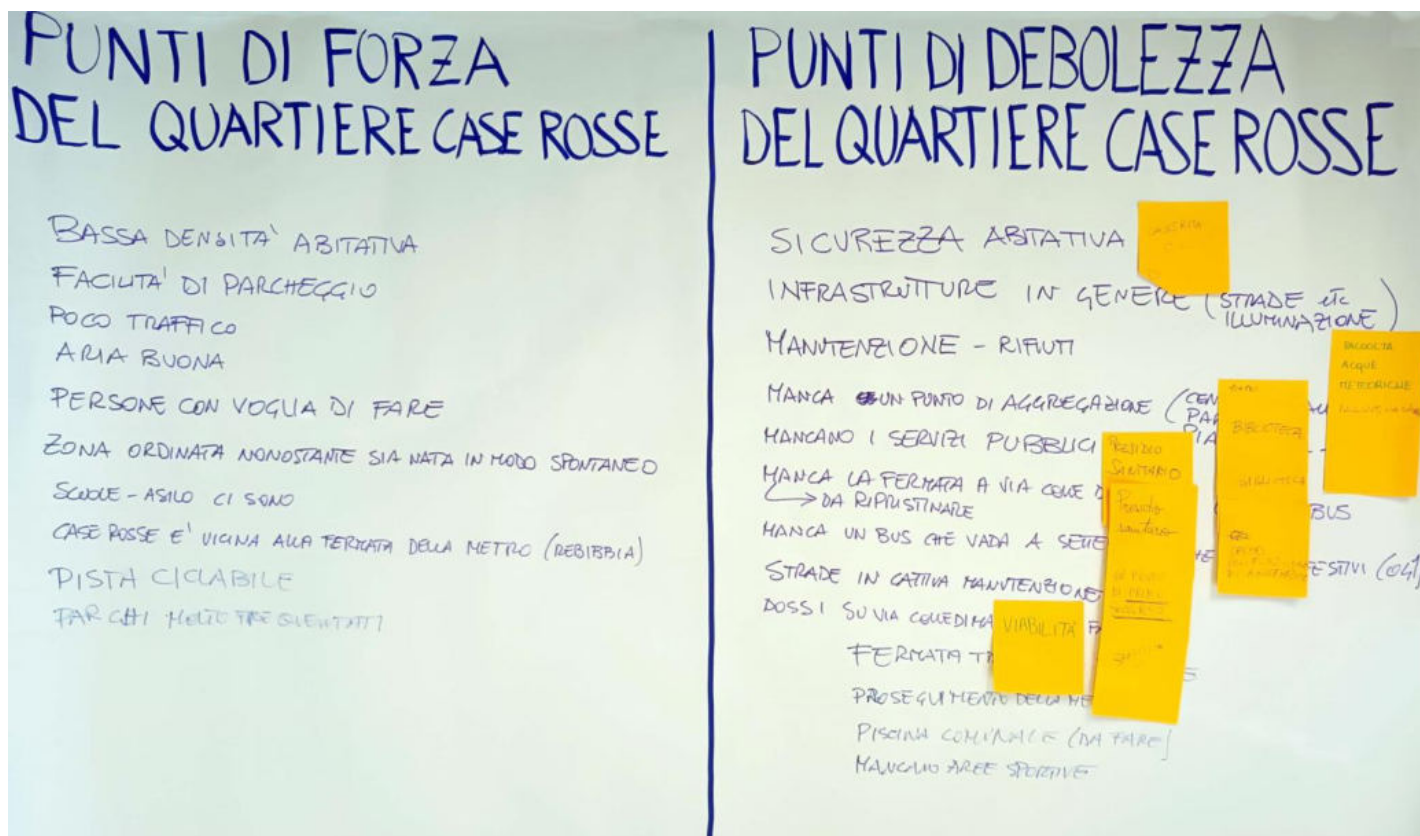 PUNTI DI FORZA
DEL QUARTIERE CASE ROSSE
BASSA DENSITA' ABITATIVA
FACILITA' DI PARCHEGGIO
POCO TRAFFICO
ARIA BUONA
PERSONE CON VOGLIA DI FARE
ZONA ORDINATA NONOSTANTE SIA NATA IN MODO SPONTANEO
SCUOLE - ASILO CI SONO
CASE ROSSE E' VICINA ALLA FERMATA DELLA METRO (REBIBBIA)
PISTA CICLABILE
PARCHI MOLTO FREQUENTATI
PUNTI DI DEBOLEZZA
DEL QUARTIERE CASE ROSSE
SICUREZZA ABITATIVA
INFRASTRUTTURE IN GENERE (STRADE etc
ILLUMINAZIONE)
MANUTENZIONE - RIFIUTI
MANCA UN PUNTO DI AGGREGAZIONE (CEN
PA
MANCANO I SERVIZI PUBBLICI
MANCA LA FERMATA A VIA COLLE D
BUS
→ DA RIPRISTINARE
MANCA UN BUS CHE VADA A SETTE
ESTIVI (041)
STRADE IN CATTIVA MANUTENZIONE
DOSSI SU VIA COLLEDIMA
FERMATA T
PROSEGUIMENTO DELLA ME
PISCINA COMUNALE (DA FARE)
MANCANO AREE SPORTIVE
RACCOLTA
ACQUE
METEORICHE
BIBLIOTECA
BIBLIOTECA
PRESIDIO
SANITARIO
Presidio
sanitario
DI PRIMO
SOCCORSO
VIABILITÀ